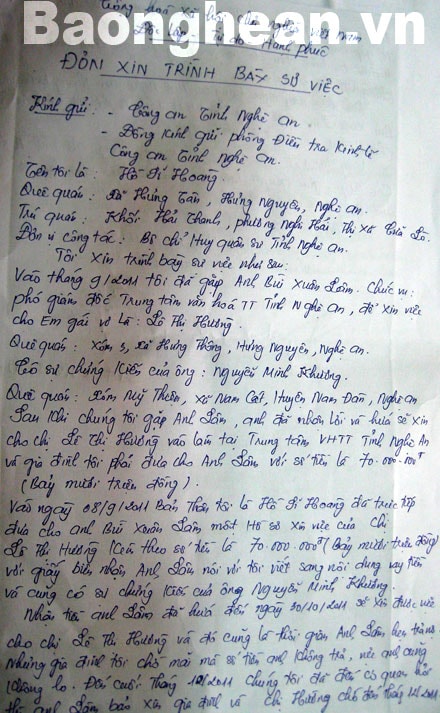 Baonghean.vn
Cộng hoà xã hội chủ nghĩa Việt Nam
Độc lập - Tự do - Hạnh phúc
ĐƠN XIN TRÌNH BÀY SỰ VIỆC
Kính gửi: - Công an Tỉnh Nghệ An.
- Đồng Kính gửi phòng Điều tra Kinh tế
Công an Tỉnh Nghệ An.
Tên tôi là: Hồ Sĩ Hoàng.
Quê quán: Xã Hưng Tân, Hưng Nguyên, Nghệ An.
Trú quán: Khối Hải Thanh, phường Nghi Hải, Thị Xã Cửa Lò.
Đơn vị công tác: Bộ chỉ Huy quân sự Tỉnh Nghệ An.
Tôi xin trình bày sự việc như sau:
Vào tháng 9/2011 tôi đã gặp Anh Bùi Xuân Lâm. Chức vụ:
phó giám đốc Trung tâm văn hoá TT Tỉnh Nghệ An, để xin việc
cho Em gái vợ là: Lê Thị Hương.
Quê quán: Xóm 3, Xã Hưng Thông, Hưng Nguyên, Nghệ An.
Có sự chứng kiến của ông: Nguyễn Minh Khương.
Quê quán: Xóm Mỹ Thiện, Xã Nam Cát, Huyện Nam Đàn, Nghệ An
Sau khi chúng tôi gặp Anh Lâm, anh đã nhận lời và hứa sẽ xin
cho chị Lê Thị Hương vào làm tại Trung tâm VHTT Tỉnh Nghệ An
và gia đình tôi phải đưa cho Anh Lâm với số tiền là 70.000.000đ
(Bảy mươi triệu đồng).
Vào ngày 08/9/2011 Bản Thân tôi là Hồ Sĩ Hoàng đã trực tiếp
đưa cho anh Bùi Xuân Lâm một Hồ sơ xin việc của chị
Lê Thị Hương kèm theo số tiền là 70.000.000đ (Bảy mươi triệu đồng)
với giấy biên nhận, Anh Lâm nói với tôi viết sang nội dung vay tiền
và cũng có sự chứng kiến của ông Nguyễn Minh Khương.
Nhận tiền anh Lâm đã hứa đến ngày 30/10/2011 sẽ xin được việc
cho chị Lê Thị Hương và đó cũng là thời gian Anh Lâm hẹn trả nợ
Nhưng gia đình tôi chờ mãi mà số tiền anh không trả, việc anh cũng
không lo. Đến cuối tháng 12/2011 chúng tôi đã đến cơ quan hỏi
thì anh Lâm bảo xin gia đình và chị Hương chờ đến tháng